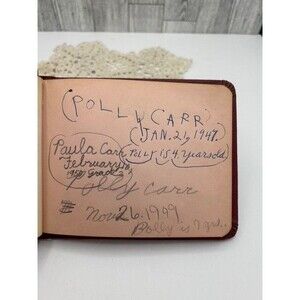 (POLLY CARR)
(JAN. 21, 1947.
Polly is 4. years old)
Paula Carr
February
grade
Polly carr
Nov 26, 1949
Polly is 7